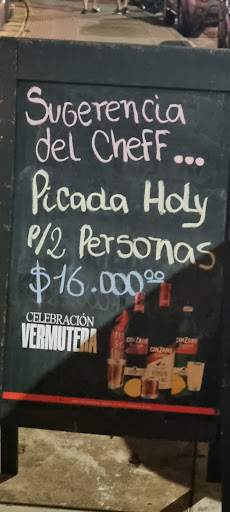 Sugerencia
del Cheff...
Picada Holy
P/2 Personas
$16.000⁰⁰
CELEBRACIÓN
VERMUTERA
CINZANO
CINZANO